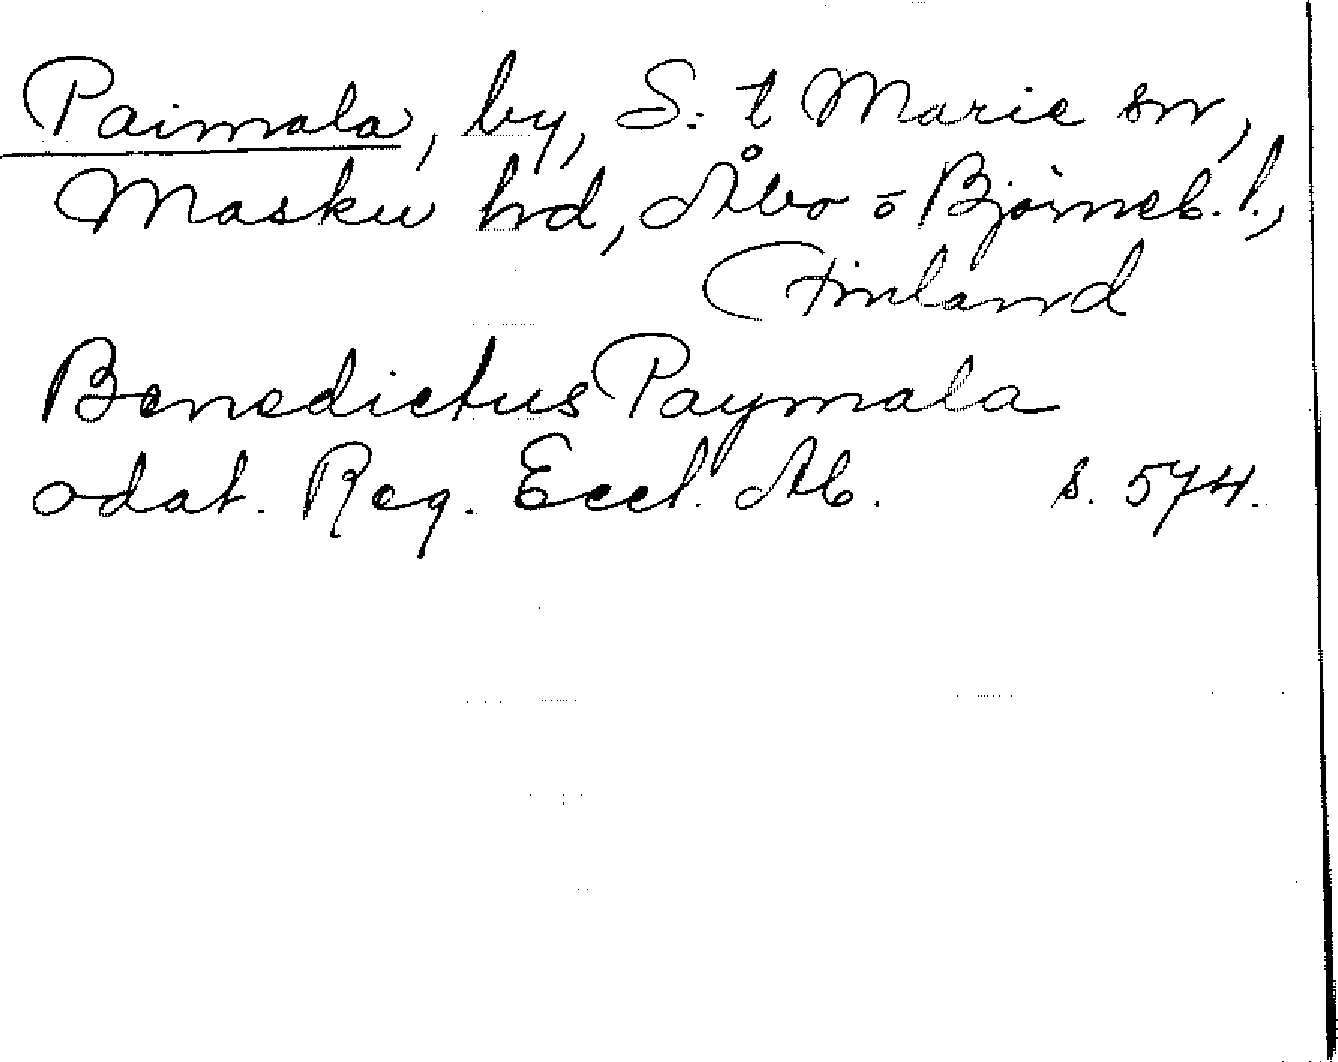 Paimala, by, S:t Marie sn,
Masku hd, Åbo o Björneb. l.,
Finland
Benedictus Paymala
odat. Reg. Eccl. Ab. s. 574.